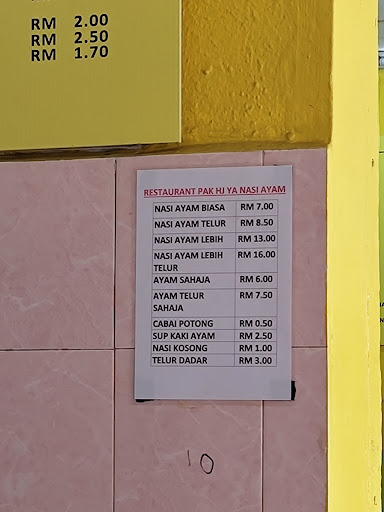 RM 2.00
RM 2.50
RM 1.70
RESTAURANT PAK HJ YA NASI AYAM
NASI AYAM BIASA RM 7.00
NASI AYAM TELUR RM 8.50
NASI AYAM LEBIH RM 13.00
NASI AYAM LEBIH RM 16.00
TELUR
AYAM SAHAJA RM 6.00
AYAM TELUR RM 7.50
SAHAJA
CABAI POTONG RM 0.50
SUP KAKI AYAM RM 2.50
NASI KOSONG RM 1.00
TELUR DADAR RM 3.00
10